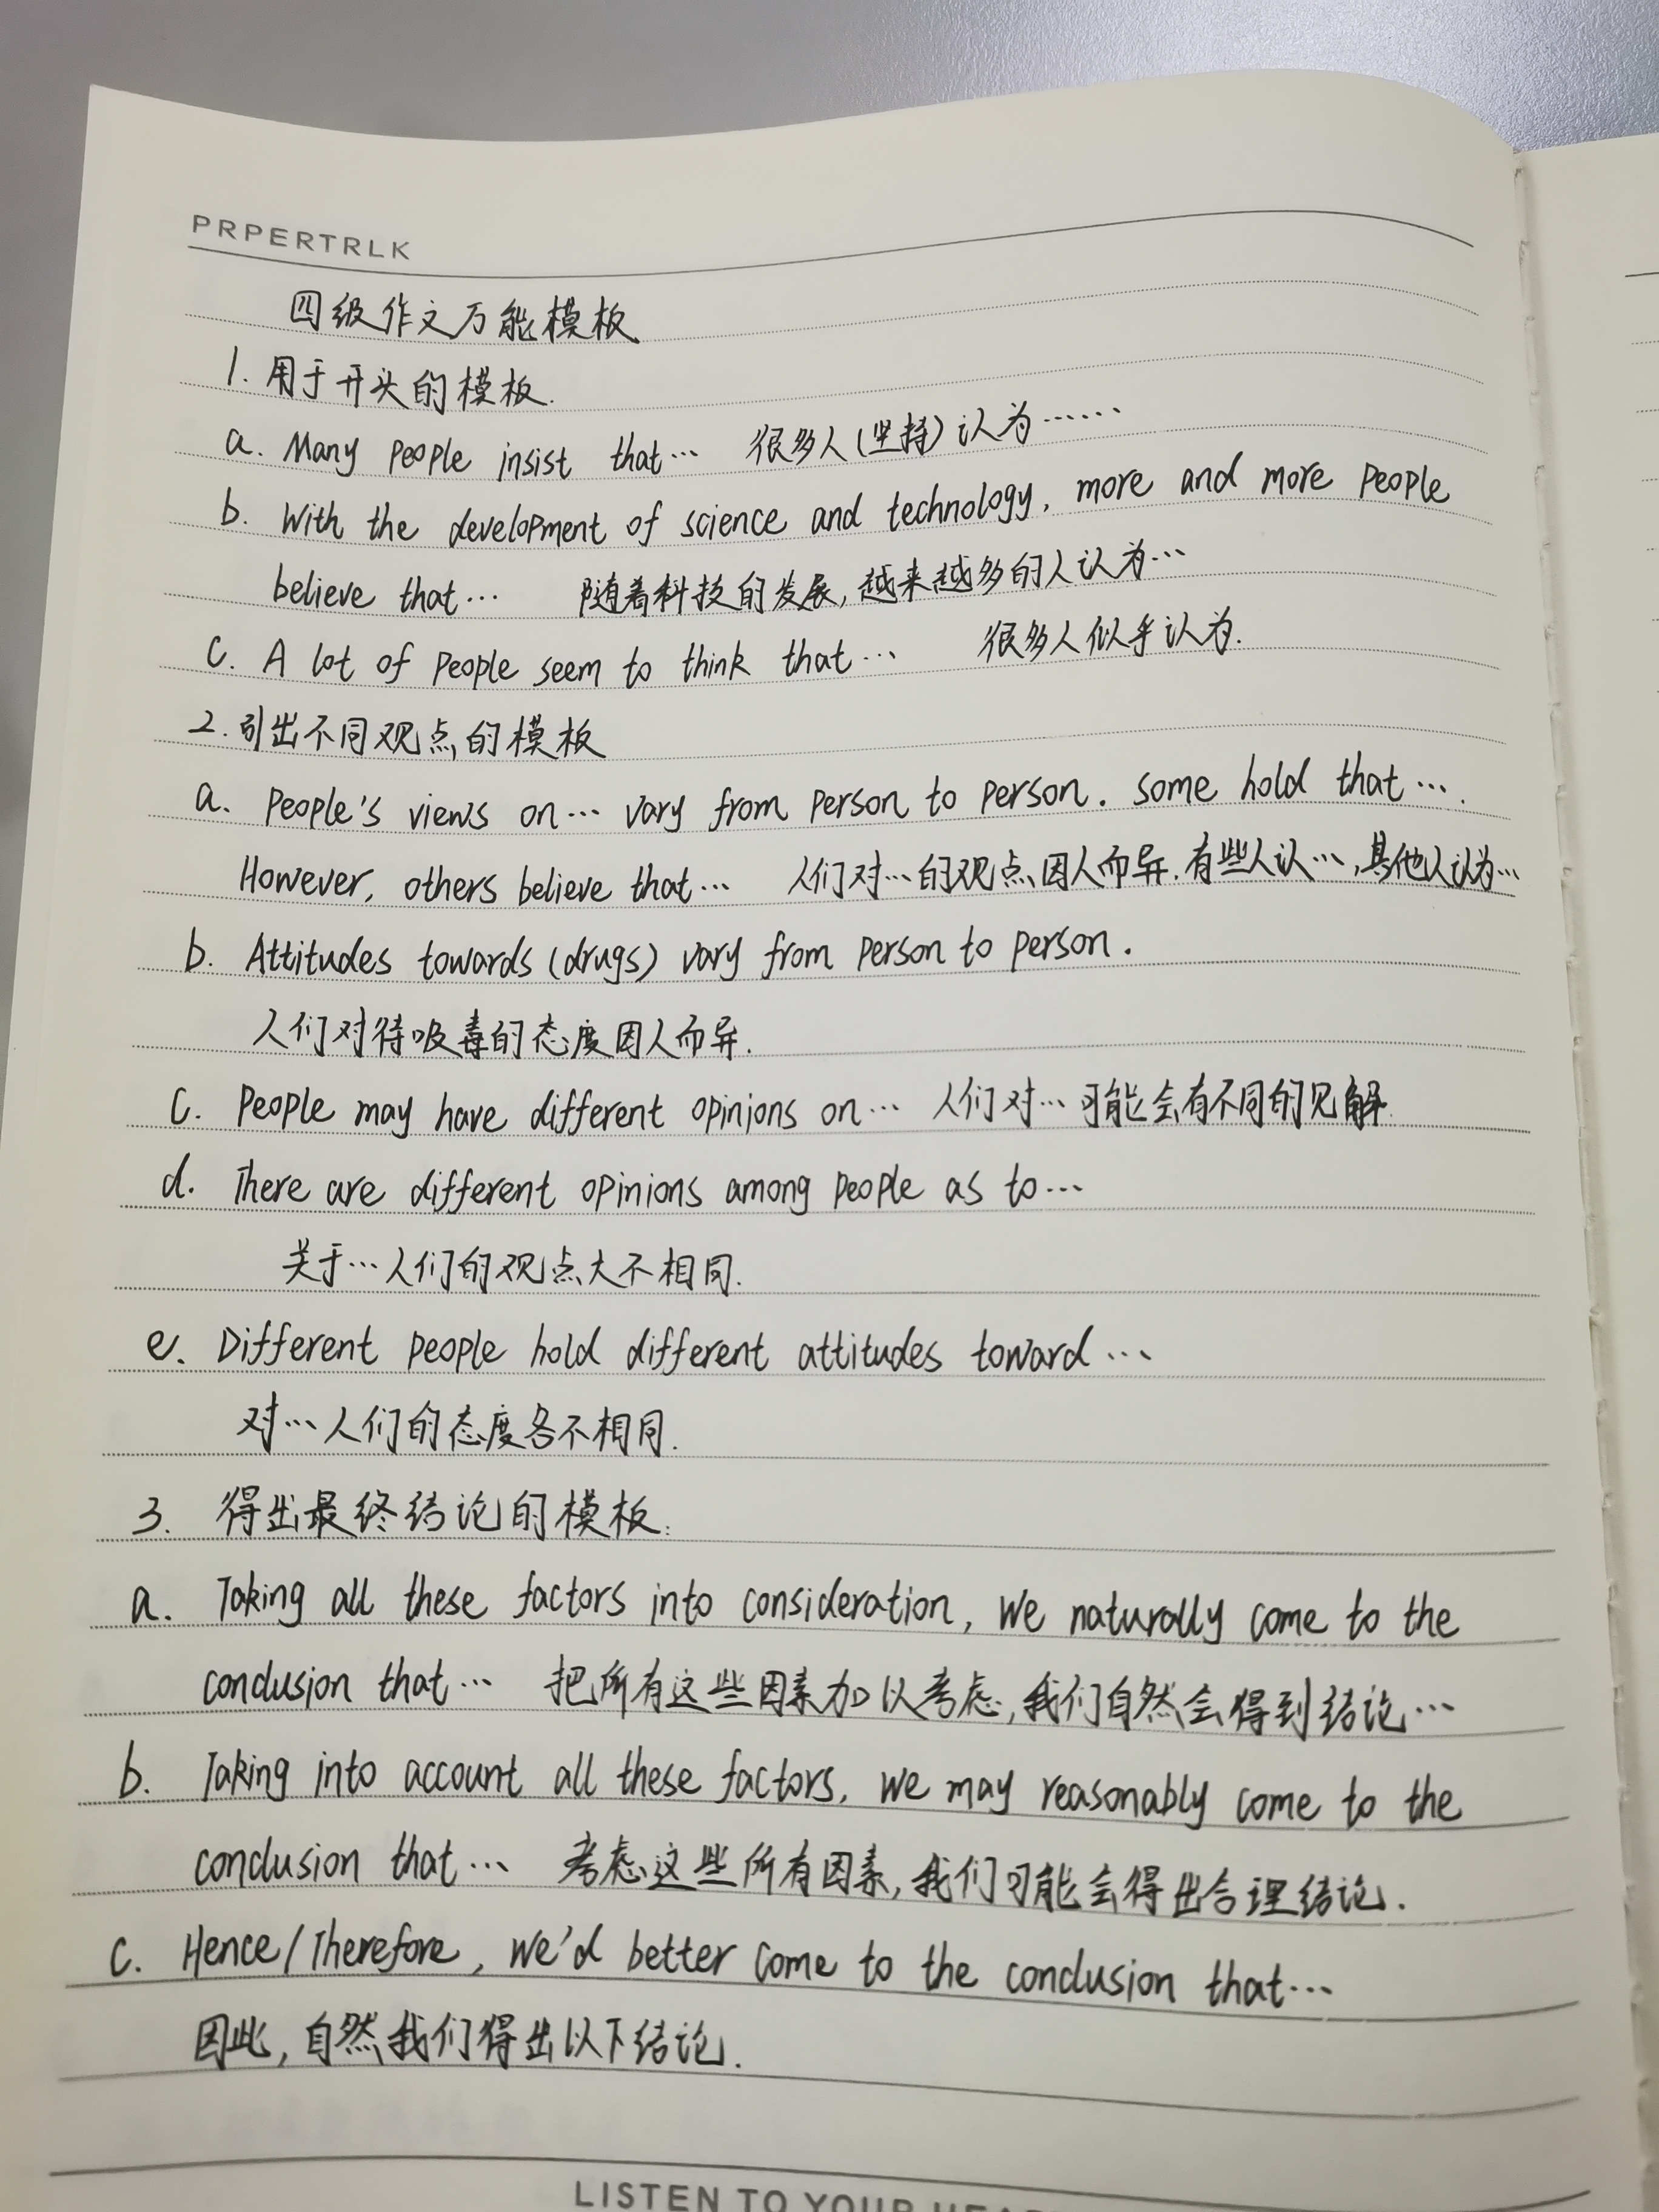 PRPERTRLK
四级作文万能模板
1. 用于开头的模板.
a. Many people insist that… 很多人(坚持)认为……
b. With the development of science and technology, more and more people
believe that… 随着科技的发展,越来越多的人认为…
c. A lot of people seem to think that… 很多人似乎认为.
2. 引出不同观点的模板
a. People's views on… vary from person to person. some hold that….
However, others believe that… 人们对…的观点因人而异.有些人认…,其他人认为…
b. Attitudes towards (drugs) vary from person to person.
人们对待吸毒的态度因人而异.
c. People may have different opinions on… 人们对…可能会有不同的见解.
d. There are different opinions among people as to…
关于…人们的观点大不相同.
e. Different people hold different attitudes toward…
对…人们的态度各不相同.
3. 得出最终结论的模板:
a. Taking all these factors into consideration, we naturally come to the
conclusion that… 把所有这些因素加以考虑,我们自然会得到结论…
b. Taking into account all these factors, we may reasonably come to the
conclusion that… 考虑这些所有因素,我们可能会得出合理结论.
c. Hence/Therefore, we'd better come to the conclusion that…
因此,自然我们得出以下结论.
LISTEN TO YOUR